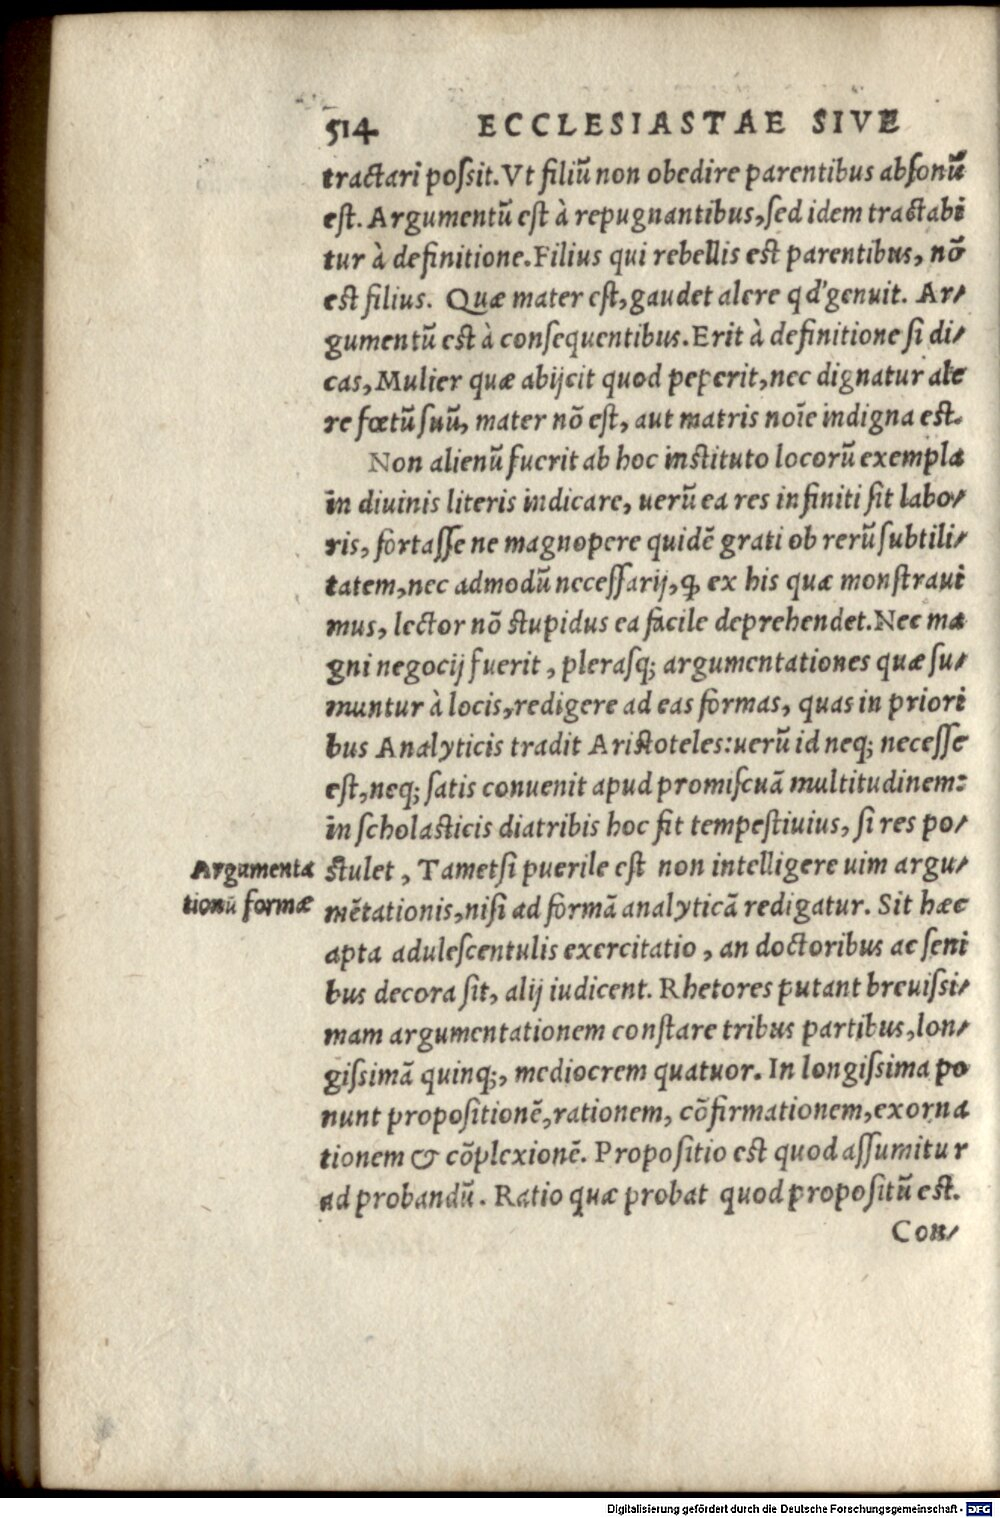 514 ECCLESIASTAE SIVE
tractari poſsit. Vt filiũ non obedire parentibus abſonũ
eſt. Argumentũ eſt à repugnantibus, ſed idem tractabi
tur à definitione. Filius qui rebellis eſt parentibus, nõ
eſt filius. Quæ mater eſt, gaudet alere qd' genuit. Ar/
gumentũ eſt à conſequentibus. Erit à definitione ſi di/
cas, Mulier quæ abijcit quod peperit, nec dignatur ale
re fœtũ ſuũ, mater nõ eſt, aut matris noĩe indigna eſt.
Non alienũ fuerit ab hoc inſtituto locorũ exempla
in diuinis literis indicare, uerũ ea res infiniti ſit labo/
ris, fortaſſe ne magnopere quidẽ grati ob rerũ ſubtili/
tatem, nec admodũ neceſſarij, ꝙ ex his quæ monſtraui
mus, lector nõ ſtupidus ea facile deprehendet. Nec ma
gni negocij fuerit, plerasq; argumentationes quæ ſu/
muntur à locis, redigere ad eas formas, quas in priori
bus Analyticis tradit Ariſtoteles: uerũ id neq; neceſſe
eſt, neq; ſatis conuenit apud promiſcuã multitudinem:
in ſcholaſticis diatribis hoc fit tempeſtiuius, ſi res po/
Argumenta
tionũ formæ
ſtulet, Tametſi puerile eſt non intelligere uim argu/
mẽtationis, niſi ad formã analyticã redigatur. Sit hæc
apta aduleſcentulis exercitatio, an doctoribus ac ſeni
bus decora ſit, alij iudicent. Rhetores putant breuiſsi/
mam argumentationem conſtare tribus partibus, lon/
giſsimã quinq;, mediocrem quatuor. In longiſsima po
nunt propoſitionẽ, rationem, cõfirmationem, exorna
tionem & cõplexionẽ. Propoſitio eſt quod aſſumitur
ad probandũ. Ratio quæ probat quod propoſitũ eſt.
Con/
Digitalisierung gefördert durch die Deutsche Forschungsgemeinschaft - DFG